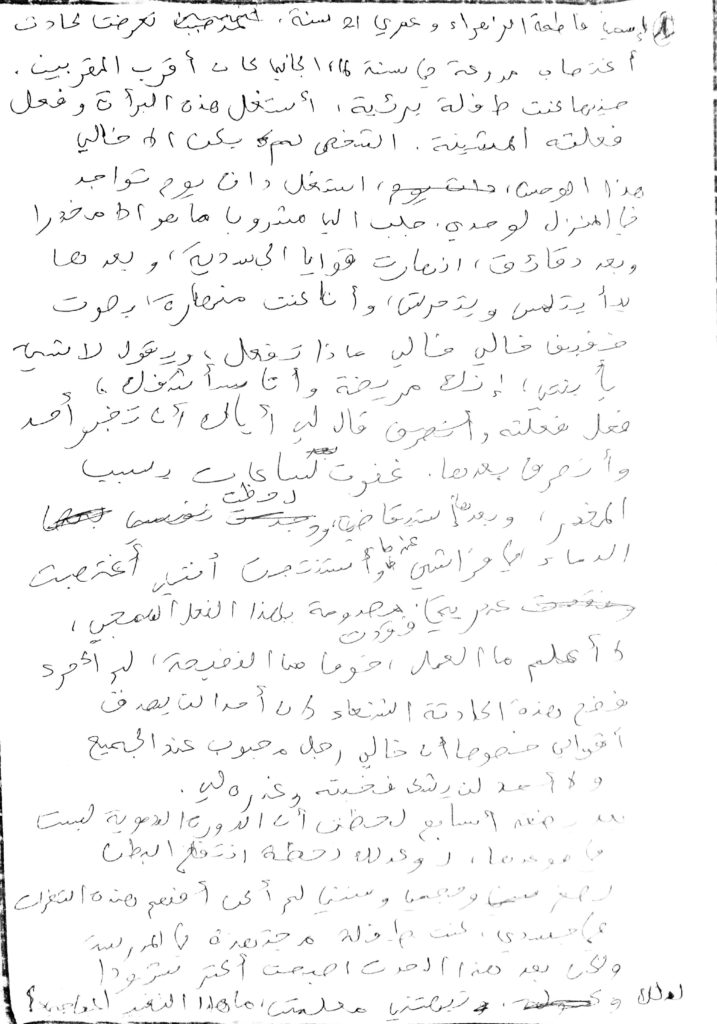 إسمي فاطمة الزهراء و عمري 21 سنة، تعرضت لحادت
أغتصاب مروعة في سنة الجاني كان أقرب المقربين.
حينها كنت طفلة بريئة، أستغل هذه البرأة وفعل
فعلته المشينة. الشخص لم يكن الا خالي
هذا الوحش، استغل دات يوم تواجد
في المنزل لوحدي. جلب الي مشروبا ما هو الا مخدرا
وبعد دقائق، انهارت قوايا الجسدية، و بعدها
بدأ يتلمس ويتحرش، وأنا كنت منهارة، بصوت
خفيف خالي خالي ماذا تفعل، ويقول لا شيء
يا بنتي، إنك مريضة وأنا سأشفك،
فعل فعلته وأنصرف قال لي أياك أن تخبر أحد
وأنصرف بعدها. غفوت لساعات بسبب
المخدر، وبعد إستيقاضي، لاحظت
الدماء في فراشي وأستنتجت أنني أغتصبت
فقدت عذريتي. مصدومة بهذا الفعل الهمجي،
لا أعلم ما العمل، خوفا من الفضيحة، لم أتجرء
فضح هذه الحادتة الشنعاء لان أحدا لن يصدق
أقوالي خصوصا ان خالي رجل محبوب عند الجميع
ولا أحد لن يشك
بعد بضعة أسابع لاحظت أن الدورة الدموية ليست
في موعدها، وكدلك لاحظة انتفاخ البطن
رغم لم أكن أفهم هذه التغيرات
في جسدي، كنت طفلة مجتهدة في المدرسة
ولكن بعد هذا الحدت اصبحت أكتر شرودا
معلمتي، ما هذا التغير